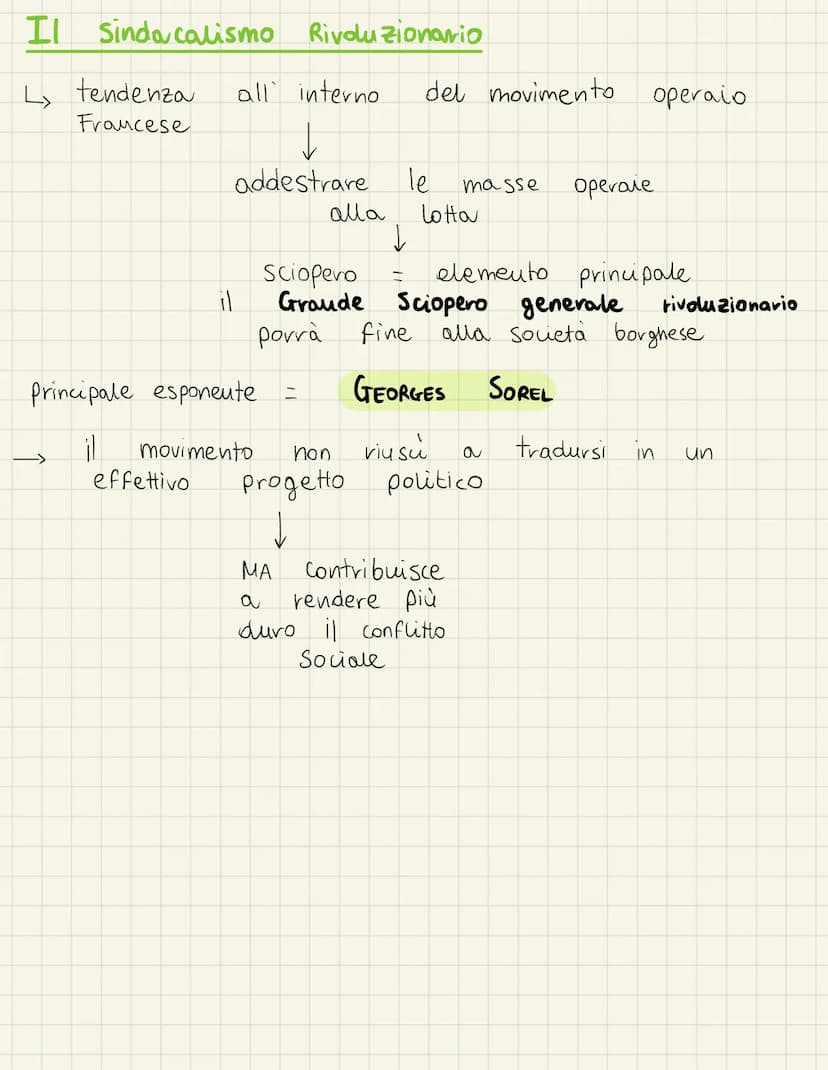 Il Sindacalismo Rivoluzionario
↳ tendenza all' interno del movimento operaio
Francese
↓
addestrare le masse operaie
alla lotta
↓
sciopero = elemento principale
il Grande Sciopero generale rivoluzionario
porrà fine alla società borghese
principale esponente = GEORGES SOREL
→ il movimento non riuscì a tradursi in un
effettivo progetto politico
↓
MA contribuisce
a rendere più
duro il conflitto
sociale